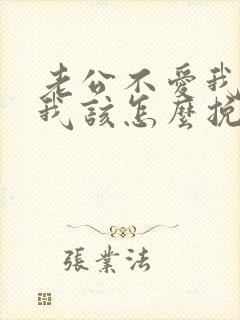 老公不愛我
我該怎麼挽
張業法